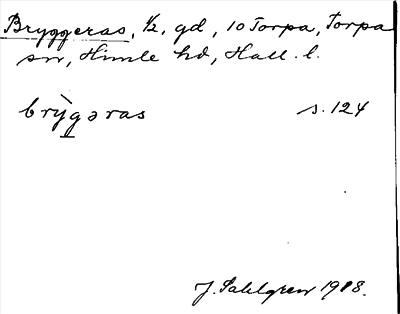 Bryggeras, 1/2, gd, 10 Torpa, Torpa
sn, Himle hd, Hall. l.
brỳgəras s. 124
J. Sahlgren 1908.